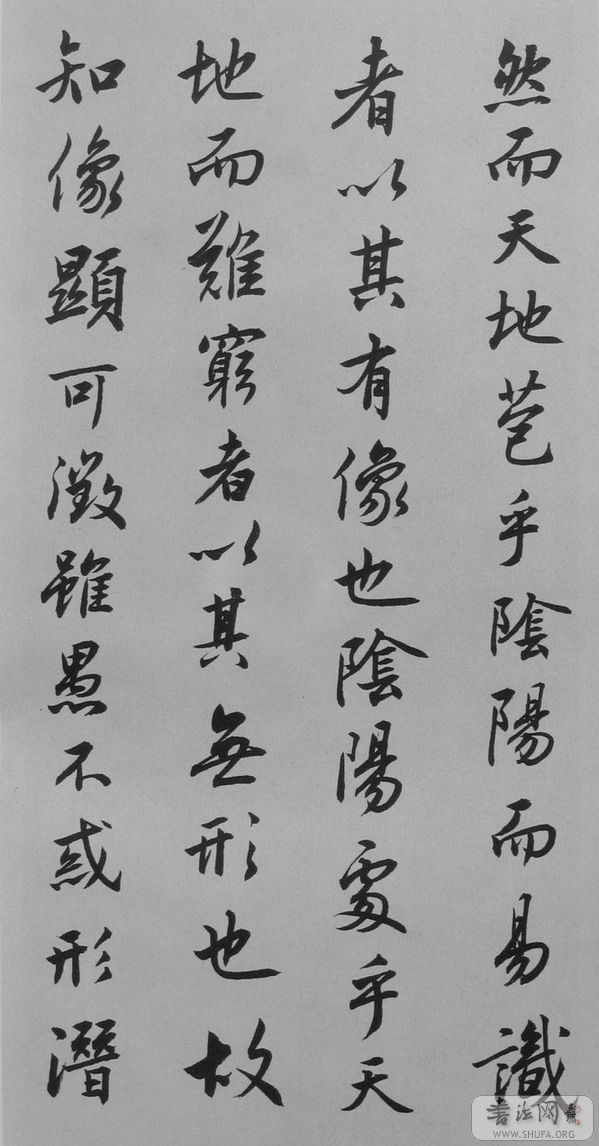 然而天地苞乎陰陽而易識
者以其有像也陰陽處乎天
地而難窮者以其無形也故
知像顯可徵雖愚不惑形潛
书法网
WWW.SHUFA.ORG